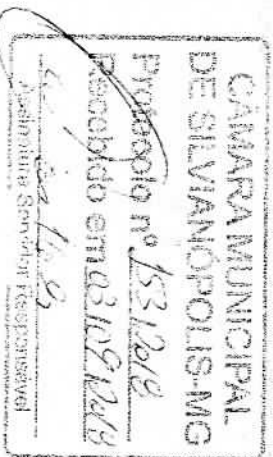 CÂMARA MUNICIPAL
DE SILVIANÓPOLIS-MG
Protocolo nº 153/2018
Recebido em 03/09/2018
Assinatura Servidor Responsável